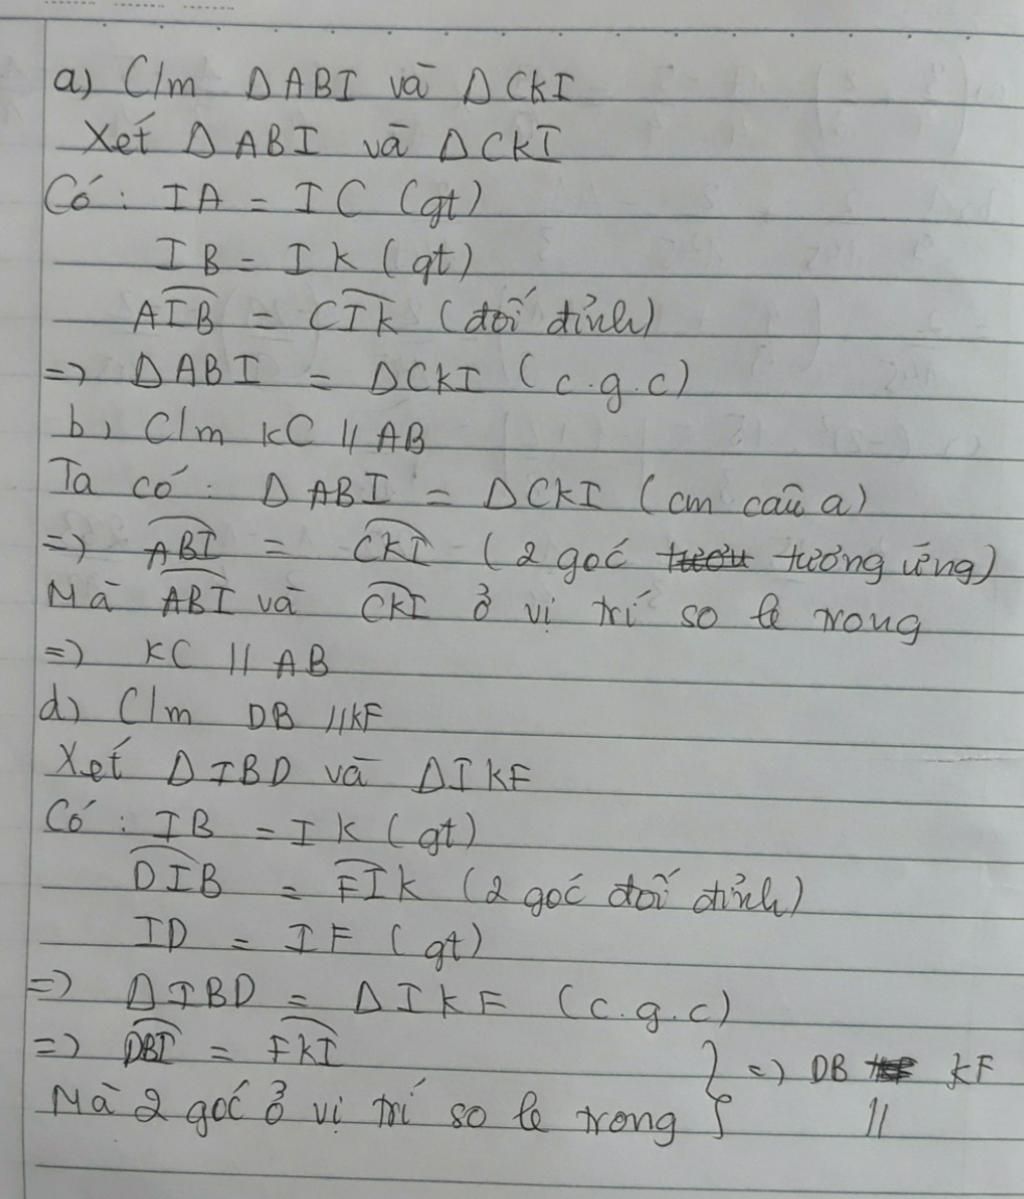 a) C/m Δ ABI và Δ CKI
Xét Δ ABI và Δ CKI
Có : IA = IC (gt)
IB = IK (gt)
AIB = CIK (đối đỉnh)
=> Δ ABI = Δ CKI (c.g.c)
b) C/m KC // AB
Ta có : Δ ABI = Δ CKI (cm câu a)
=> ABI = CKI (2 góc tương ứng)
Mà ABI và CKI ở vị trí so le trong
=> KC // AB
d) C/m DB // KF
Xét Δ IBD và Δ IKF
Có : IB = IK (gt)
DIB = FIK (2 góc đối đỉnh)
ID = IF (gt)
=> Δ IBD = Δ IKF (c.g.c)
=> DBI = FKI
Mà 2 góc ở vị trí so le trong } => DB // KF